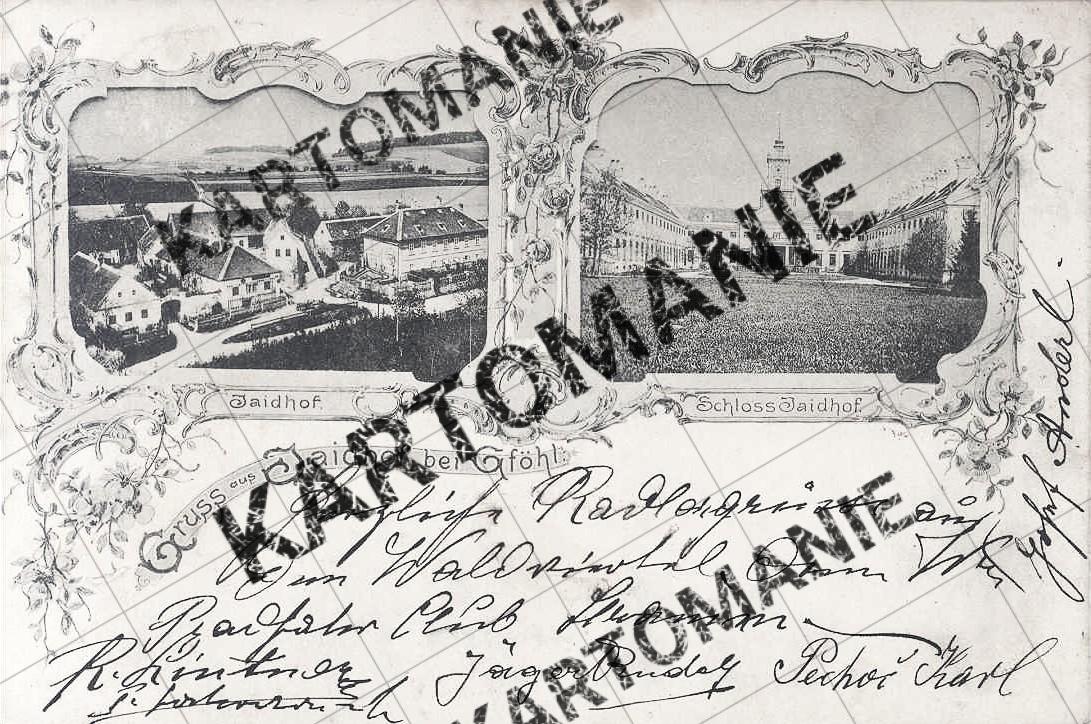 KARTOMANIE
KARTOMANIE
KARTOMANIE
Jaidhof.
Schloss Jaidhof.
Gruss aus Jaidhof bei Gföhl.
Herzliche Radlergrüsse aus
dem Waldviertel dem
Radfahr Club
R. Lintner Jäger Rudolf Pechoč Karl
Josef Anderl.